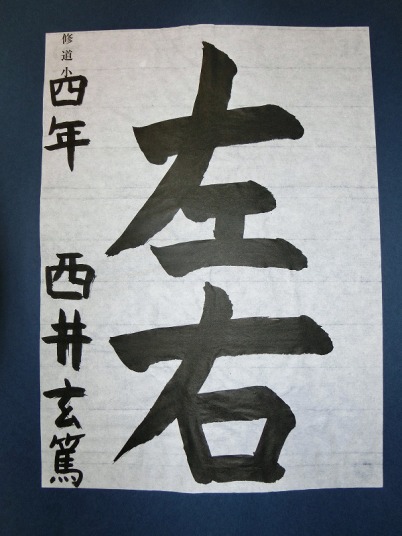 左右
修道小
四年 西井玄篤